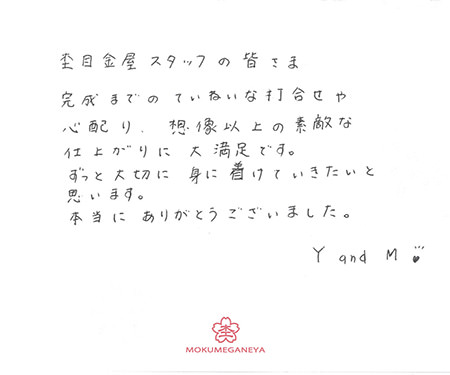 杢目金屋スタッフの皆さま
完成までのていねいな打合せや
心配り、想像以上の素敵な
仕上がりに大満足です。
ずっと大切に身に着けていきたいと
思います。
本当にありがとうございました。
Y and M
杢
MOKUMEGANEYA